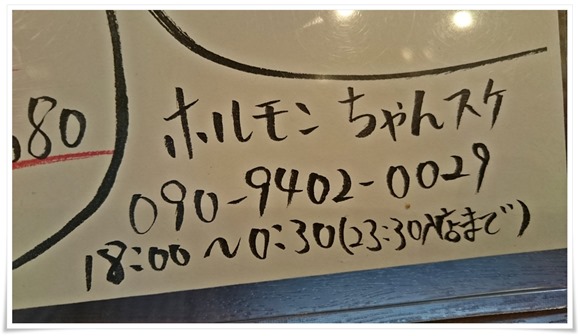 80
ホルモン ちゃんスケ
090-9402-0029
18:00〜0:30(23:30入店まで)